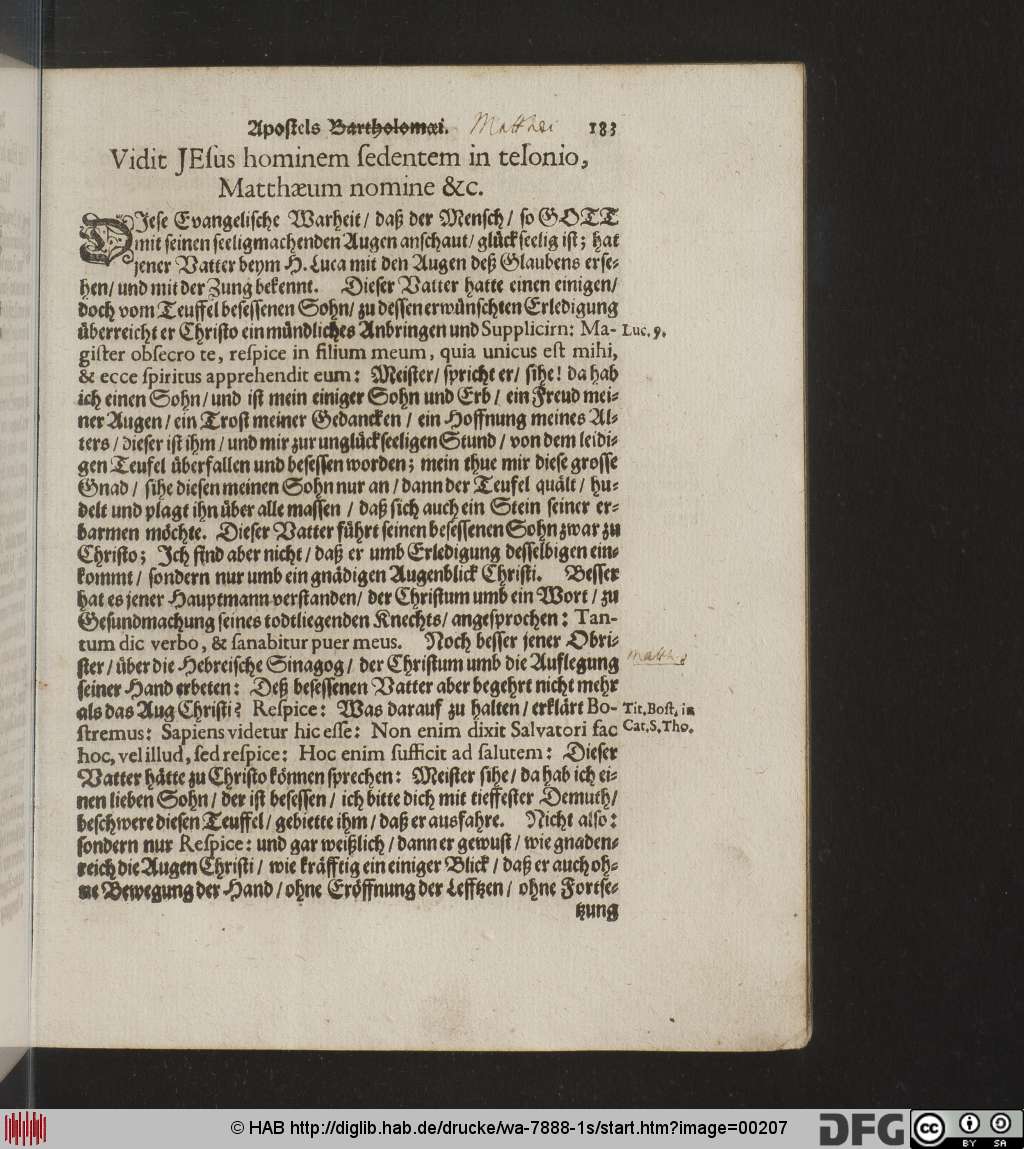 Apostels Bartholomæi. Matthei 183
Vidit JEsus hominem sedentem in telonio,
Matthæum nomine &c.
DIese Evangelische Warheit / daß der Mensch / so GOTT
mit seinen seeligmachenden Augen anschaut / glückseelig ist; hat
jener Vatter beym H. Luca mit den Augen deß Glaubens erse-
hen / und mit der Zung bekennt. Dieser Vatter hatte einen einigen /
doch vom Teuffel besessenen Sohn / zu dessen erwünschten Erledigung
überreicht er Christo ein mündliches Anbringen und Supplicirn: Ma- Luc. 9.
gister obsecro te, respice in filium meum, quia unicus est mihi,
& ecce spiritus apprehendit eum: Meister / spricht er / sihe! da hab
ich einen Sohn / und ist mein einiger Sohn und Erb / ein Freud mei-
ner Augen / ein Trost meiner Gedancken / ein Hoffnung meines Al-
ters / dieser ist ihm / und mir zur unglückseeligen Stund / von dem leidi-
gen Teufel überfallen und besessen worden; mein thue mir diese grosse
Gnad / sihe diesen meinen Sohn nur an / dann der Teufel quält / hu-
delt und plagt ihn über alle massen / daß sich auch ein Stein seiner er-
barmen möchte. Dieser Vatter führt seinen besessenen Sohn zwar zu
Christo; Ich find aber nicht / daß er umb Erledigung desselbigen ein-
kommt / sondern nur umb ein gnädigen Augenblick Christi. Besser
hat es jener Hauptmann verstanden / der Christum umb ein Wort / zu
Gesundmachung seines todtliegenden Knechts / angesprochen: Tan-
tum dic verbo, & sanabitur puer meus. Noch besser jener Obri-
ster / über die Hebreische Sinagog / der Christum umb die Auflegung matth. 9
seiner Hand erbeten: Deß besessenen Vatter aber begehrt nicht mehr
als das Aug Christi? Respice: Was darauf zu halten / erklärt Bo- Tit. Bost. in
stremus: Sapiens videtur hic esse: Non enim dixit Salvatori fac Cat. S. Tho.
hoc, vel illud, sed respice: Hoc enim sufficit ad salutem: Dieser
Vatter hätte zu Christo können sprechen: Meister sihe / da hab ich ei-
nen lieben Sohn / der ist besessen / ich bitte dich mit tieffester Demuth /
beschwere diesen Teuffel / gebiette ihm / daß er ausfahre. Nicht also:
sondern nur Respice: und gar weißlich / dann er gewust / wie gnaden-
reich die Augen Christi / wie kräfftig ein einiger Blick / daß er auch oh-
ne Bewegung der Hand / ohne Eröffnung der Lefftzen / ohne Fortse-
tzung
© HAB http://diglib.hab.de/drucke/wa-7888-1s/start.htm?image=00207
DFG
cc BY SA